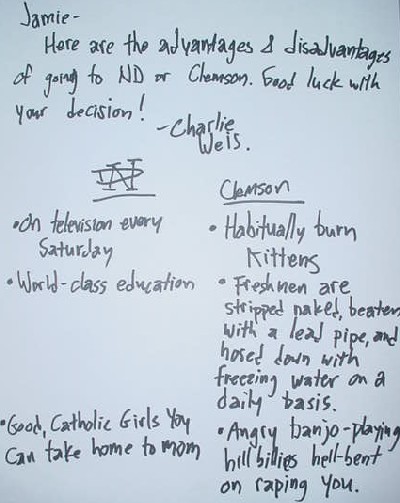 Jamie-
Here are the advantages & disadvantages
of going to ND or Clemson. Good luck with
your decision!
-Charlie
Weis.
ND
• On television every
Saturday
• World-class education
• Good, Catholic Girls You
Can take home to mom
Clemson
• Habitually burn
Kittens
• Freshmen are
stripped naked, beaten
with a lead pipe, and
hosed down with
freezing water on a
daily basis.
• Angry banjo-playing
hillbillies hell-bent
on raping you.